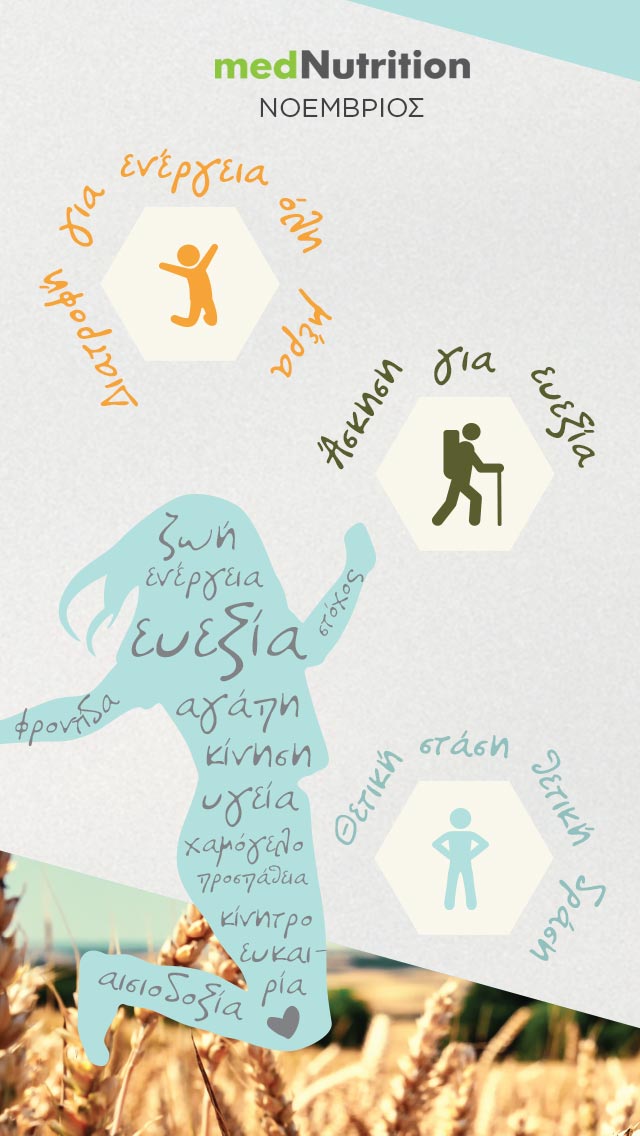 medNutrition
ΝΟΕΜΒΡΙΟΣ
Διατροφή για ενέργεια όλη μέρα
Άσκηση για ευεξία
ζωή
ενέργεια
στόχος
ευεξία
φροντίδα
αγάπη
κίνηση
υγεία
Θετική στάση θετική δράση
χαμόγελο
προσπάθεια
κίνητρο
ευκαι-
ρία
αισιοδοξία